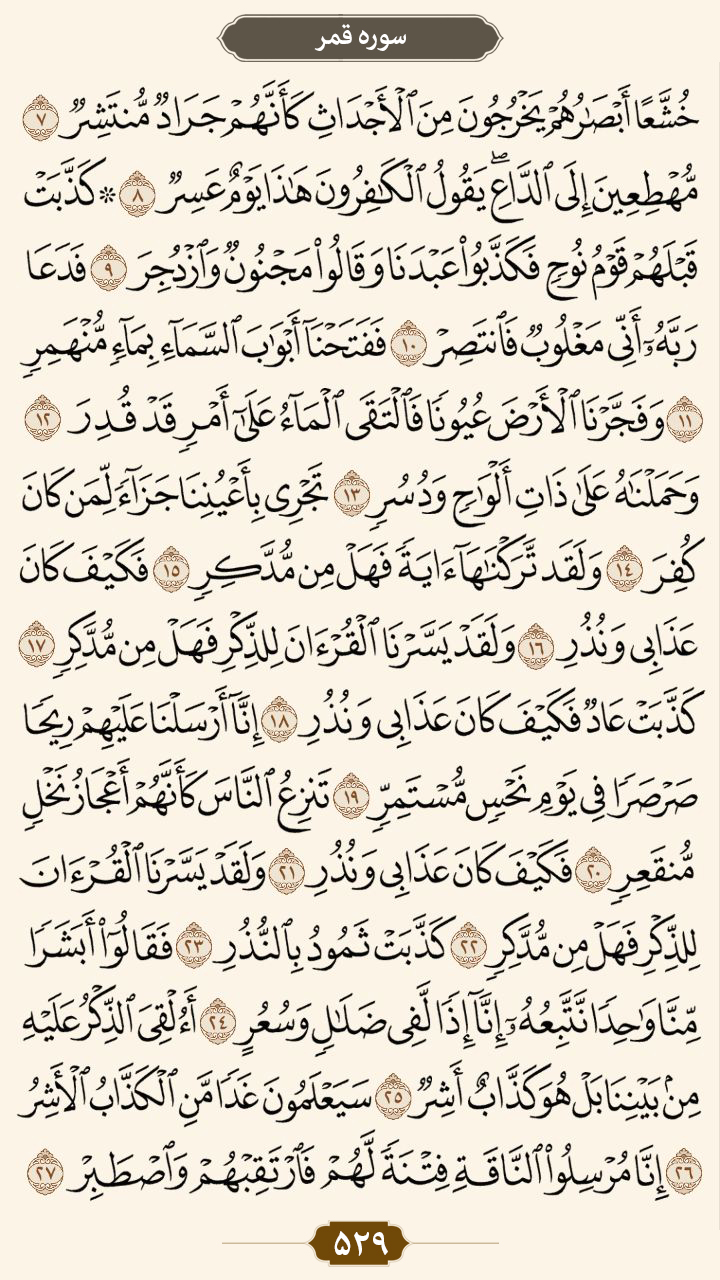 سوره قمر
خُشَّعًا أَبْصَـٰرُهُمْ يَخْرُجُونَ مِنَ ٱلْأَجْدَاثِ كَأَنَّهُمْ جَرَادٌ مُّنتَشِرٌ ٧
مُّهْطِعِينَ إِلَى ٱلدَّاعِ ۖ يَقُولُ ٱلْكَـٰفِرُونَ هَـٰذَا يَوْمٌ عَسِرٌ ٨ ۞ كَذَّبَتْ
قَبْلَهُمْ قَوْمُ نُوحٍ فَكَذَّبُوا۟ عَبْدَنَا وَقَالُوا۟ مَجْنُونٌ وَٱزْدُجِرَ ٩ فَدَعَا
رَبَّهُۥٓ أَنِّى مَغْلُوبٌ فَٱنتَصِرْ ١٠ فَفَتَحْنَآ أَبْوَٰبَ ٱلسَّمَآءِ بِمَآءٍ مُّنْهَمِرٍ
١١ وَفَجَّرْنَا ٱلْأَرْضَ عُيُونًا فَٱلْتَقَى ٱلْمَآءُ عَلَىٰٓ أَمْرٍ قَدْ قُدِرَ ١٢
وَحَمَلْنَـٰهُ عَلَىٰ ذَاتِ أَلْوَٰحٍ وَدُسُرٍ ١٣ تَجْرِى بِأَعْيُنِنَا جَزَآءً لِّمَن كَانَ
كُفِرَ ١٤ وَلَقَد تَّرَكْنَـٰهَآ ءَايَةً فَهَلْ مِن مُّدَّكِرٍ ١٥ فَكَيْفَ كَانَ
عَذَابِى وَنُذُرِ ١٦ وَلَقَدْ يَسَّرْنَا ٱلْقُرْءَانَ لِلذِّكْرِ فَهَلْ مِن مُّدَّكِرٍ ١٧
كَذَّبَتْ عَادٌ فَكَيْفَ كَانَ عَذَابِى وَنُذُرِ ١٨ إِنَّآ أَرْسَلْنَا عَلَيْهِمْ رِيحًا
صَرْصَرًا فِى يَوْمِ نَحْسٍ مُّسْتَمِرٍّ ١٩ تَنزِعُ ٱلنَّاسَ كَأَنَّهُمْ أَعْجَازُ نَخْلٍ
مُّنقَعِرٍ ٢٠ فَكَيْفَ كَانَ عَذَابِى وَنُذُرِ ٢١ وَلَقَدْ يَسَّرْنَا ٱلْقُرْءَانَ
لِلذِّكْرِ فَهَلْ مِن مُّدَّكِرٍ ٢٢ كَذَّبَتْ ثَمُودُ بِٱلنُّذُرِ ٢٣ فَقَالُوٓا۟ أَبَشَرًا
مِّنَّا وَٰحِدًا نَّتَّبِعُهُۥٓ إِنَّآ إِذًا لَّفِى ضَلَـٰلٍ وَسُعُرٍ ٢٤ أَءُلْقِىَ ٱلذِّكْرُ عَلَيْهِ
مِنۢ بَيْنِنَا بَلْ هُوَ كَذَّابٌ أَشِرٌ ٢٥ سَيَعْلَمُونَ غَدًا مَّنِ ٱلْكَذَّابُ ٱلْأَشِرُ
٢٦ إِنَّا مُرْسِلُوا۟ ٱلنَّاقَةِ فِتْنَةً لَّهُمْ فَٱرْتَقِبْهُمْ وَٱصْطَبِرْ ٢٧
۵۲۹